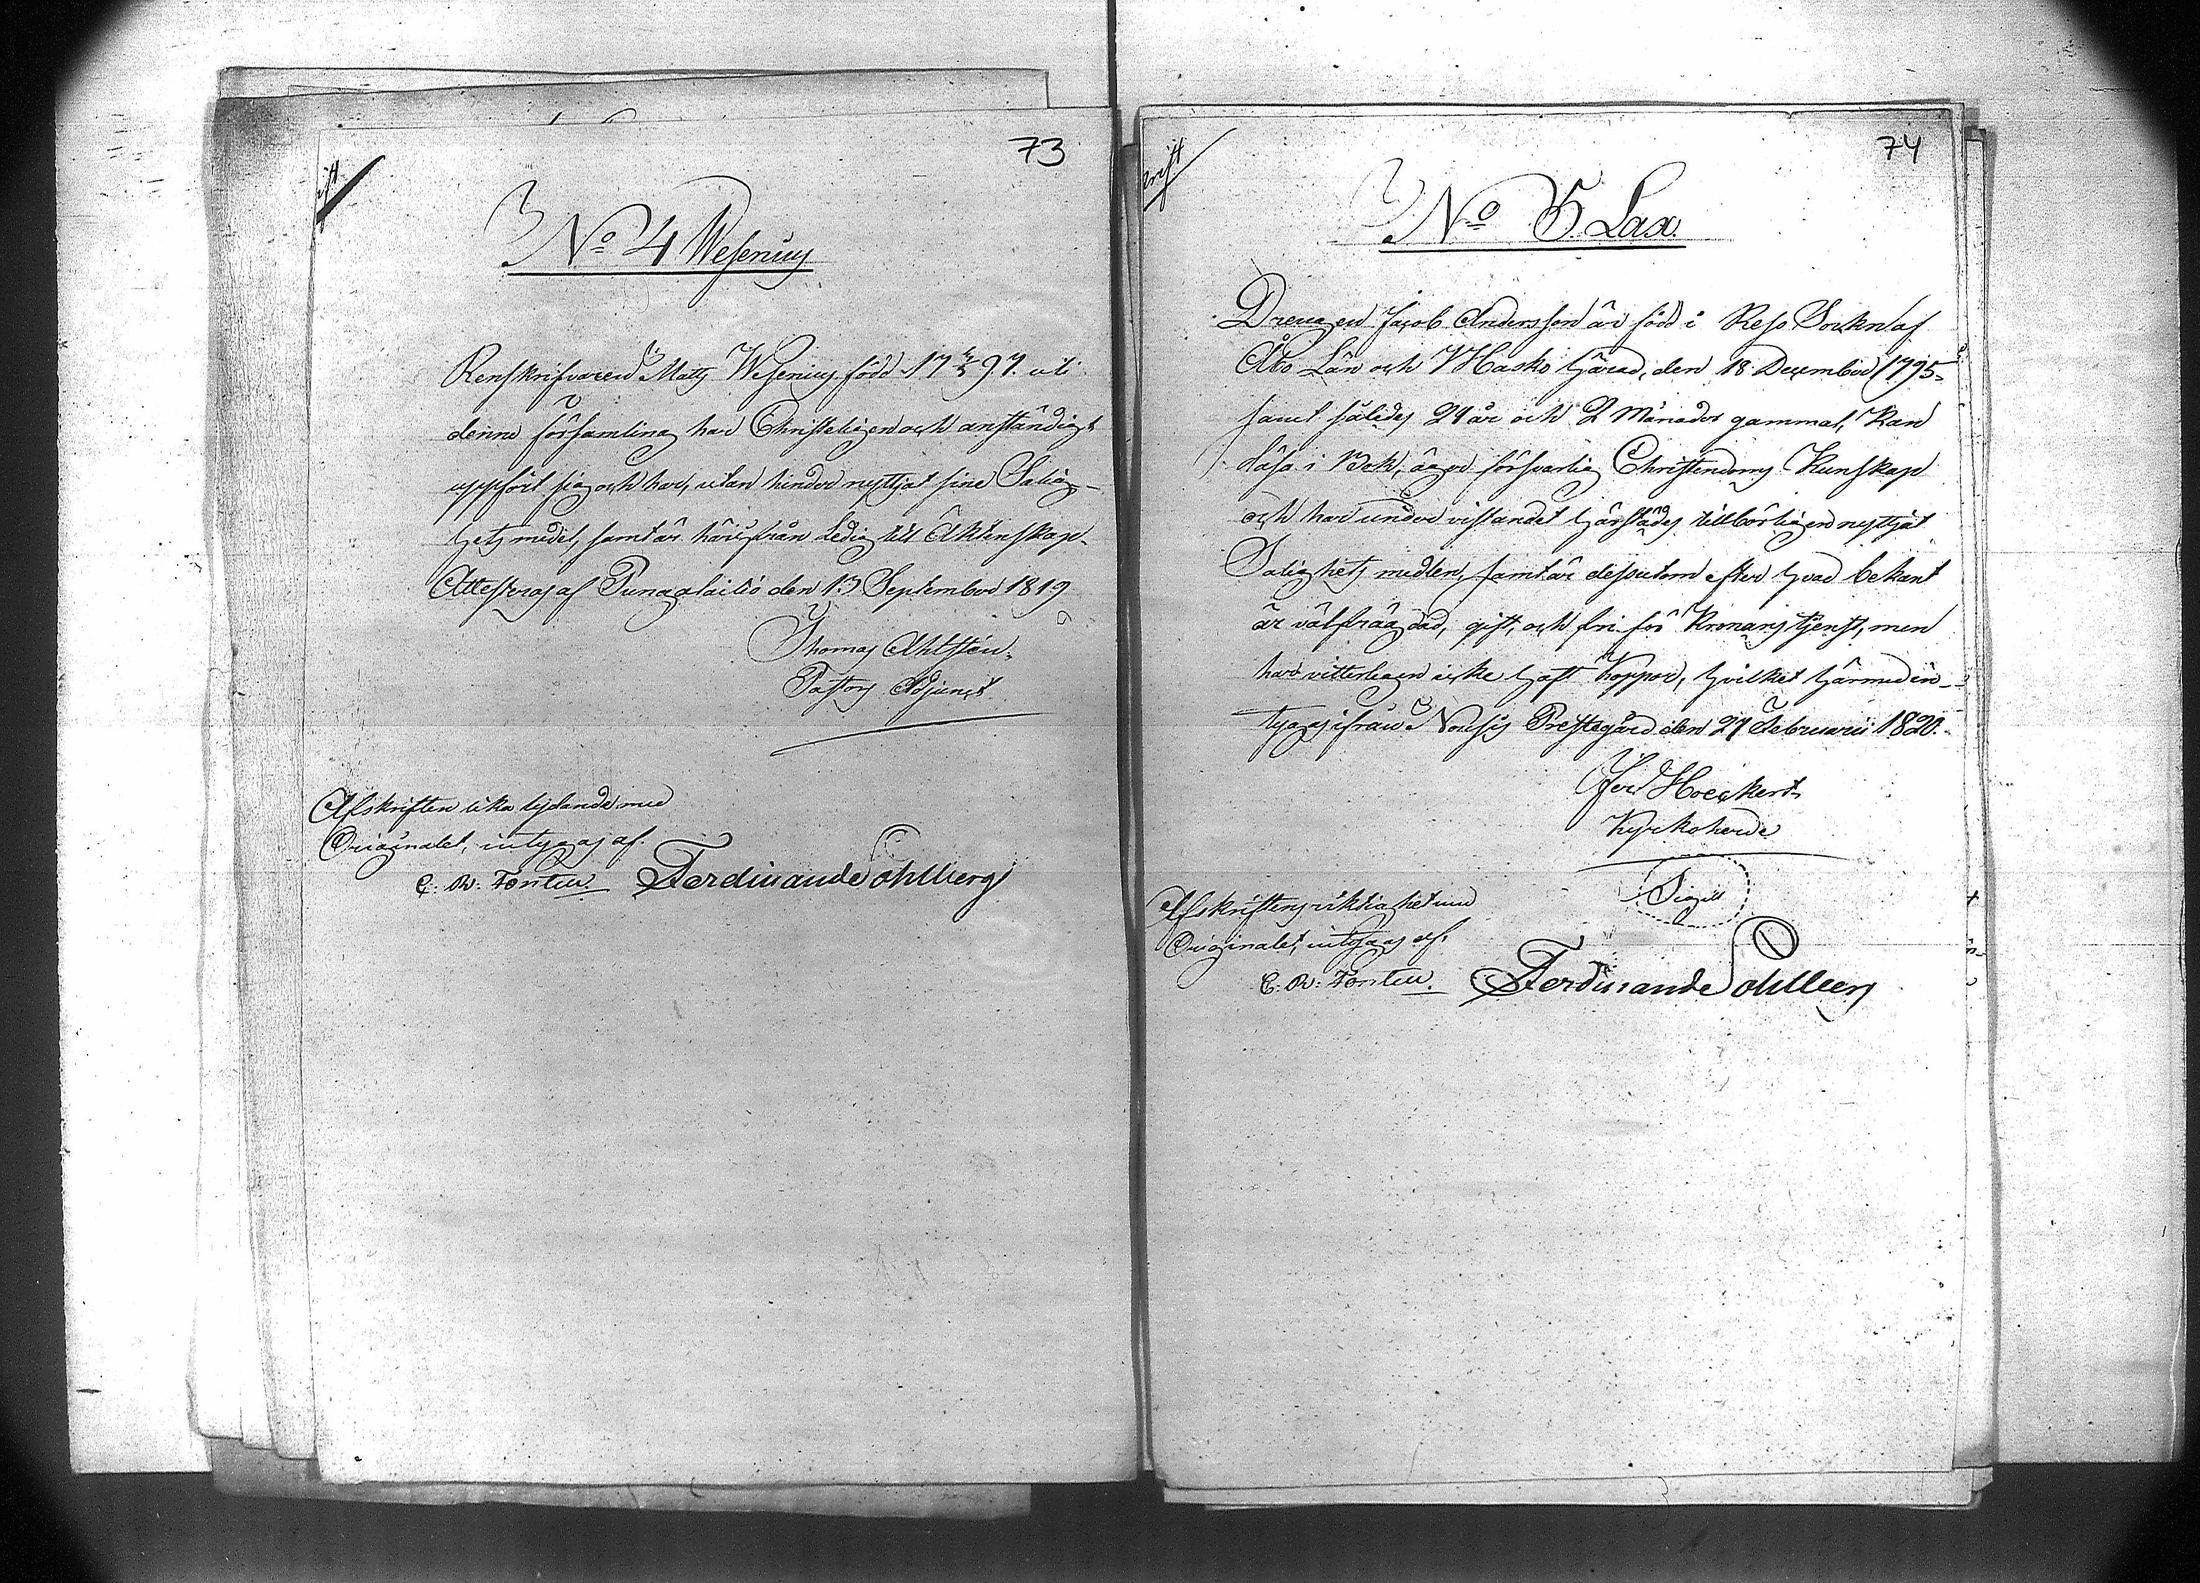 73
No 4 Wesenius
Renskrifvaren Matts Wesenius född 17 97. uti
denne församling har Christeligen och anständigt
uppfört sig och har, utan hinder nyttjat sine Salig-
hets medel, samt är härifrån ledig till Äktenskap.
Attesteras af Pungalaitio den 13 September 1819
Thomas Ahlsten
Pastors Adjunct
Afskriften lika lydande med
Originalet, intygas af.
Ferdinand Sohlberg
74
No 5. Lax.
Drengen Jacob Andersson är född i Reso Sockn af
Åbo Län och Masko härad, den 18 December 1795
samt således 24 år och 2 Månader gammal, Kan
läsa i Bok, äger försvarlig Christendoms Kunskap
och har under vistandet härstädes tillbörligen nyttjat
Salighets medlen, samt är dessutom efter hvad bekant
är välfrägdad, gift, och fri för Kronans tjenst, men
har vitterligen icke haft Koppor, hvilket härmed in-
tygas ifrån Nousis Prestegård den 27 Februarii 1820.
Hoeckert
Kyrkoherde
Sigill
Afskriftens riktighet med
Originalet, intygas af.
Ferdinand Sohlberg